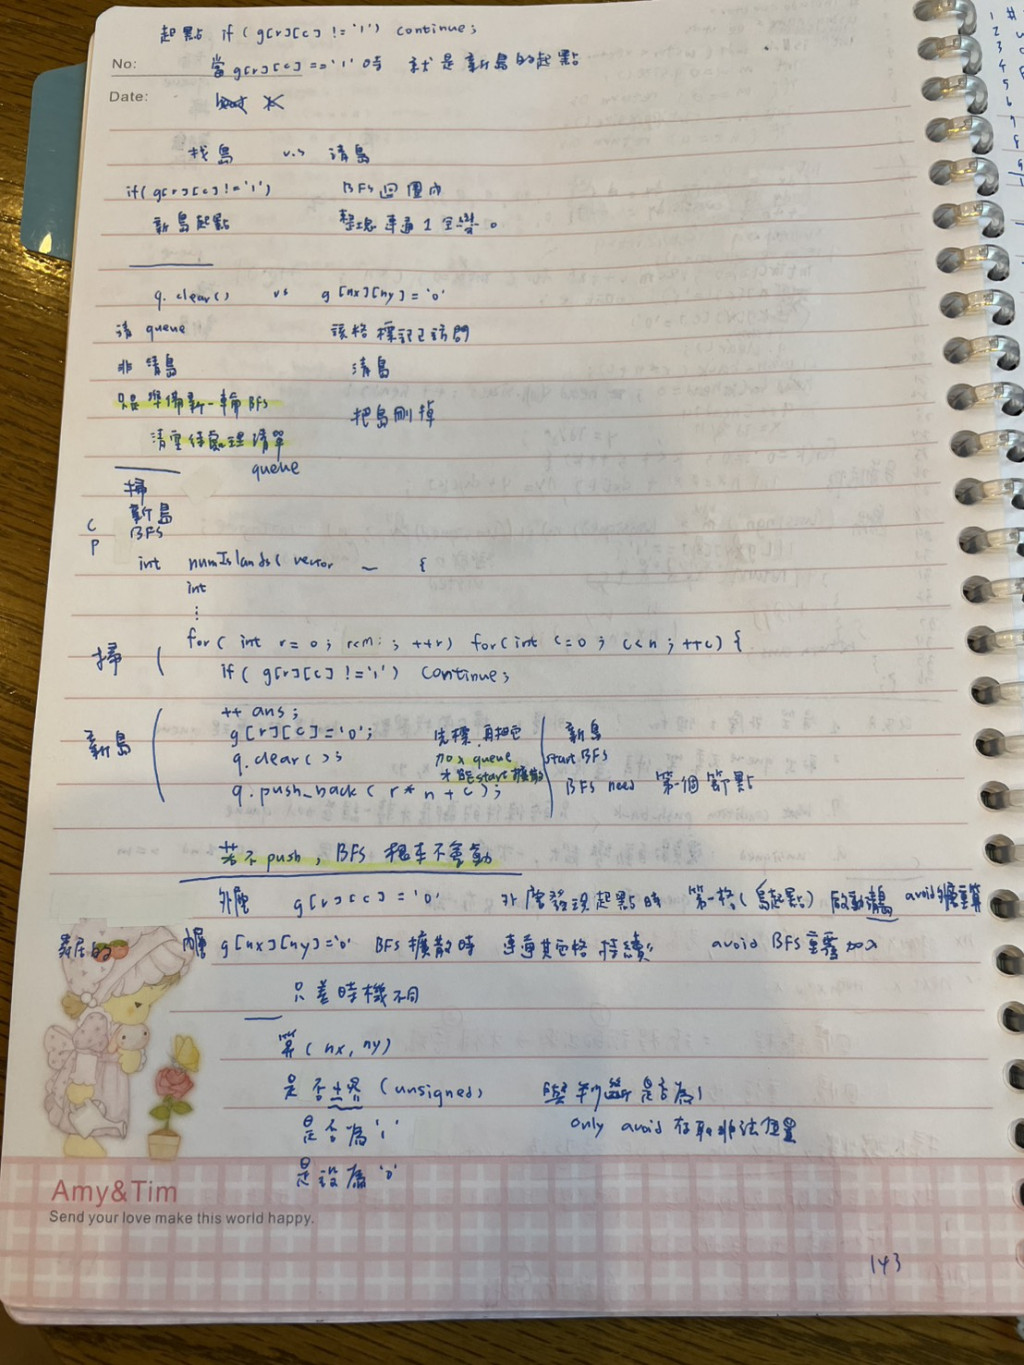 起點 if ( g[r][c] != '1' ) continue;
No: 當 g[r][c] == '1' 時 就是新島的起點
Date:
找島 v.s 清島
if( g[r][c] != '1' ) BFS 迴圈內
新島起點 整塊連通 1 全變 0
q. clear() vs g [nx][ny] = '0'
清 queue 該格標記已訪問
非 清島 清島
只是準備新一輪 BFS 把島刪掉
清空待處理清單
queue
掃
C 新島
P BFS
int numIslands( vector — {
int
⋮
掃 for( int r = 0 ; r<m ; ++r) for( int c=0 ; c<n ; ++c) {
if( g[r][c] != '1') continue;
新島 ++ ans ;
g[r][c] = '0'; 先標,再把它 新島
q.clear(); 加入 queue start BFS
才能 start 擴散
q.push_back ( r * n + c ); BFS need 第一個節點
若不 push, BFS 根本不會動
外層 g[r][c] = '0' 外層發現起點時 第一格(島起點) 啟動清島 avoid外層重算
最后的 內層 g[nx][ny]='0' BFS 擴散時 連通其它格 持續" avoid BFS 重覆加入
只差時機不同
算 ( nx, ny)
是否出界 (unsigned) 與判斷是否為1
是否為 '1' only avoid 存取非法位置
是設為 '0'
Amy&Tim
Send your love make this world happy.
143